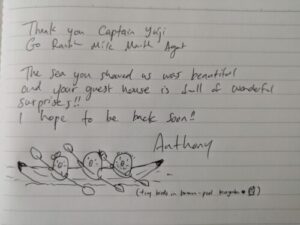 Thank you Captain Yuji
The sea you showed us was beautiful
and your guest house is full of wonderful
surprises!!
I hope to be back soon!!
Anthony
(tiny birds in banana-peel